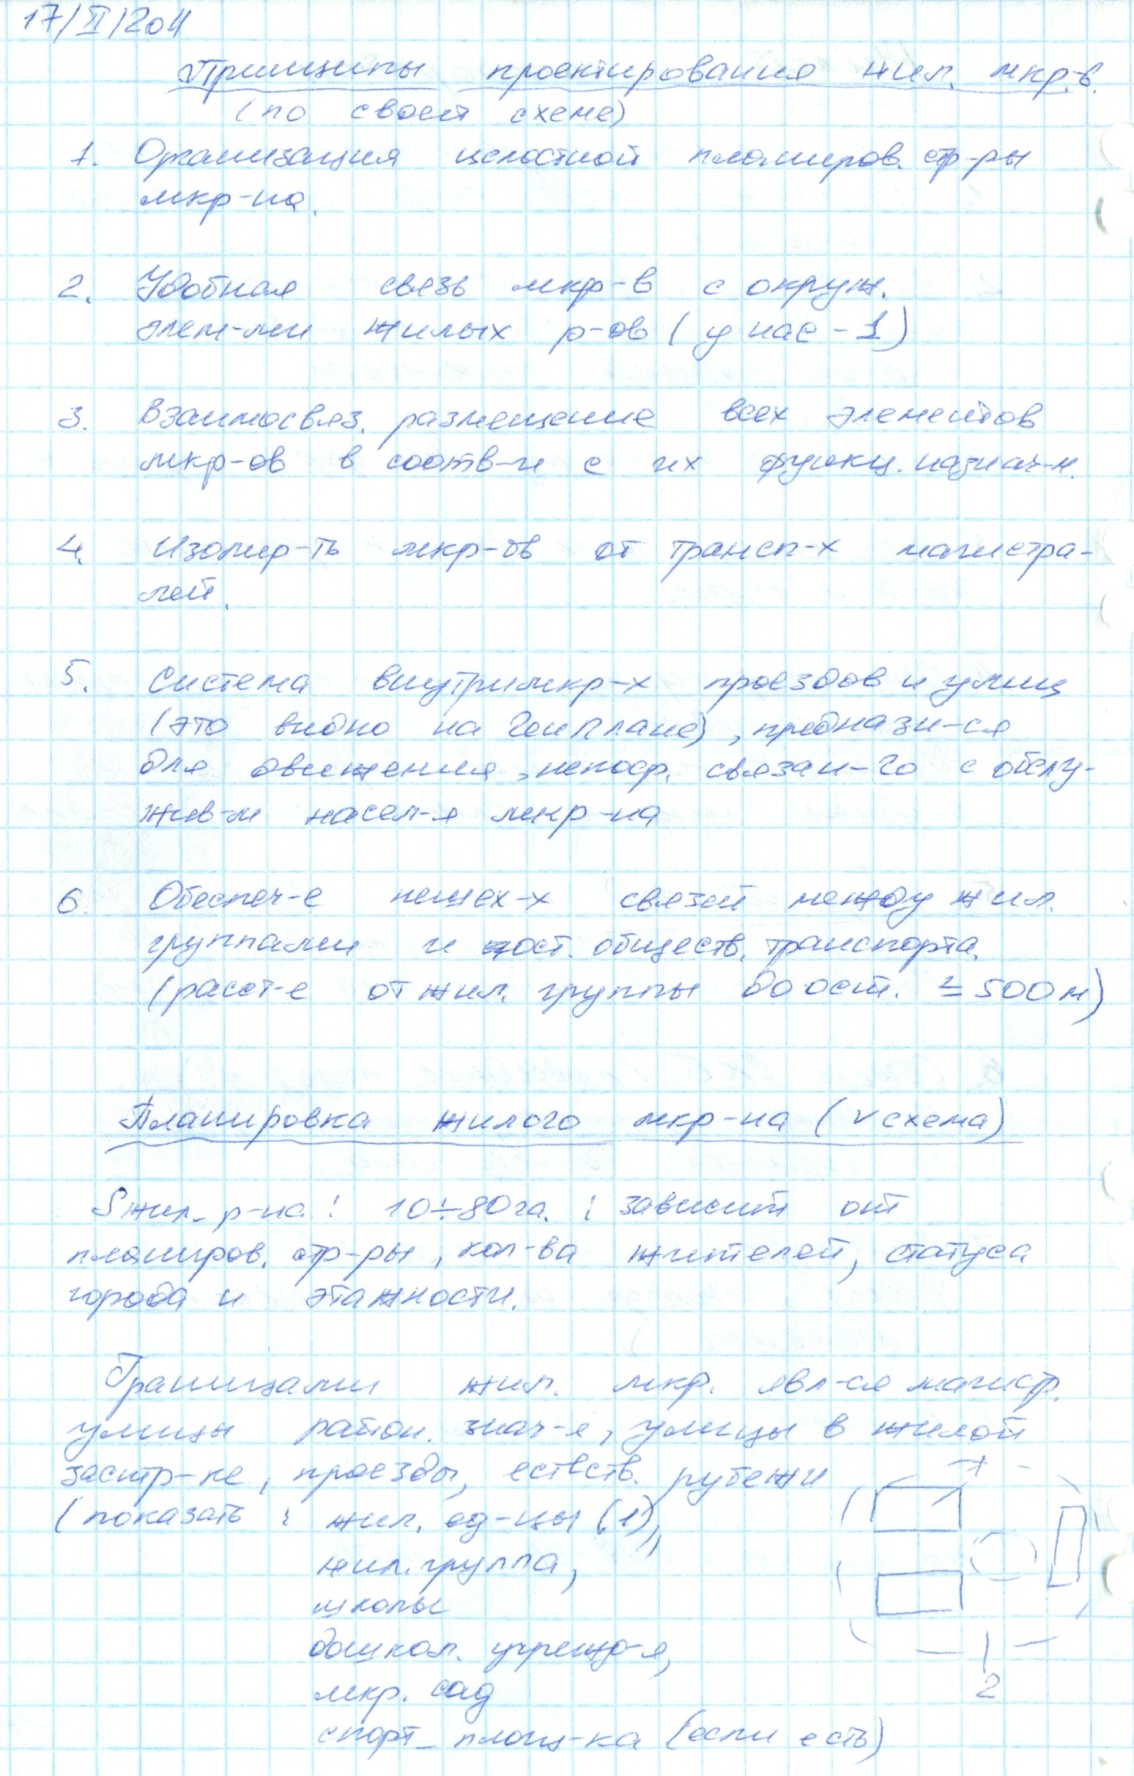 17/II/2011
Принципы проектирования жил. мкр-в.
(по своей схеме)
1. Организация целостной планиров. стр-ры
мкр-на.
2. Удобная связь мкр-в с окруж.
элем-ми жилых р-ов (у нас - 1)
3. Взаимосвяз. размещение всех элементов
мкр-ов в соотв-и с их функц. назнач-м.
4. Изолир-ть мкр-ов от трансп-х магистра-
лей.
5. Система внутримкр-х проездов и улиц
(это видно на Генплане), предназн-ся
для движения, непоср. связан-го с обслу-
жив-м насел-я мкр-на
6. Обеспеч-е пешех-х связей между жил.
группами и ост. обществ. транспорта.
(расст-е от жил. группы до ост. ≤ 500м)
Планировка жилого мкр-на (v схема)
S жил. р-на: 10÷80га. ; зависит от
планиров. стр-ры, кол-ва жителей, статуса
города и этажности.
Границами жил. мкр. явл-ся магистр.
улицы район. знач-я, улицы в жилой
застр-ке, проезды, естеств. рубежи
(показать : жил. ед-цы (1),
жил. группа,
школы
дошкол. учрежд-я,
мкр. сад
спорт. площ-ка (если есть)
1
2